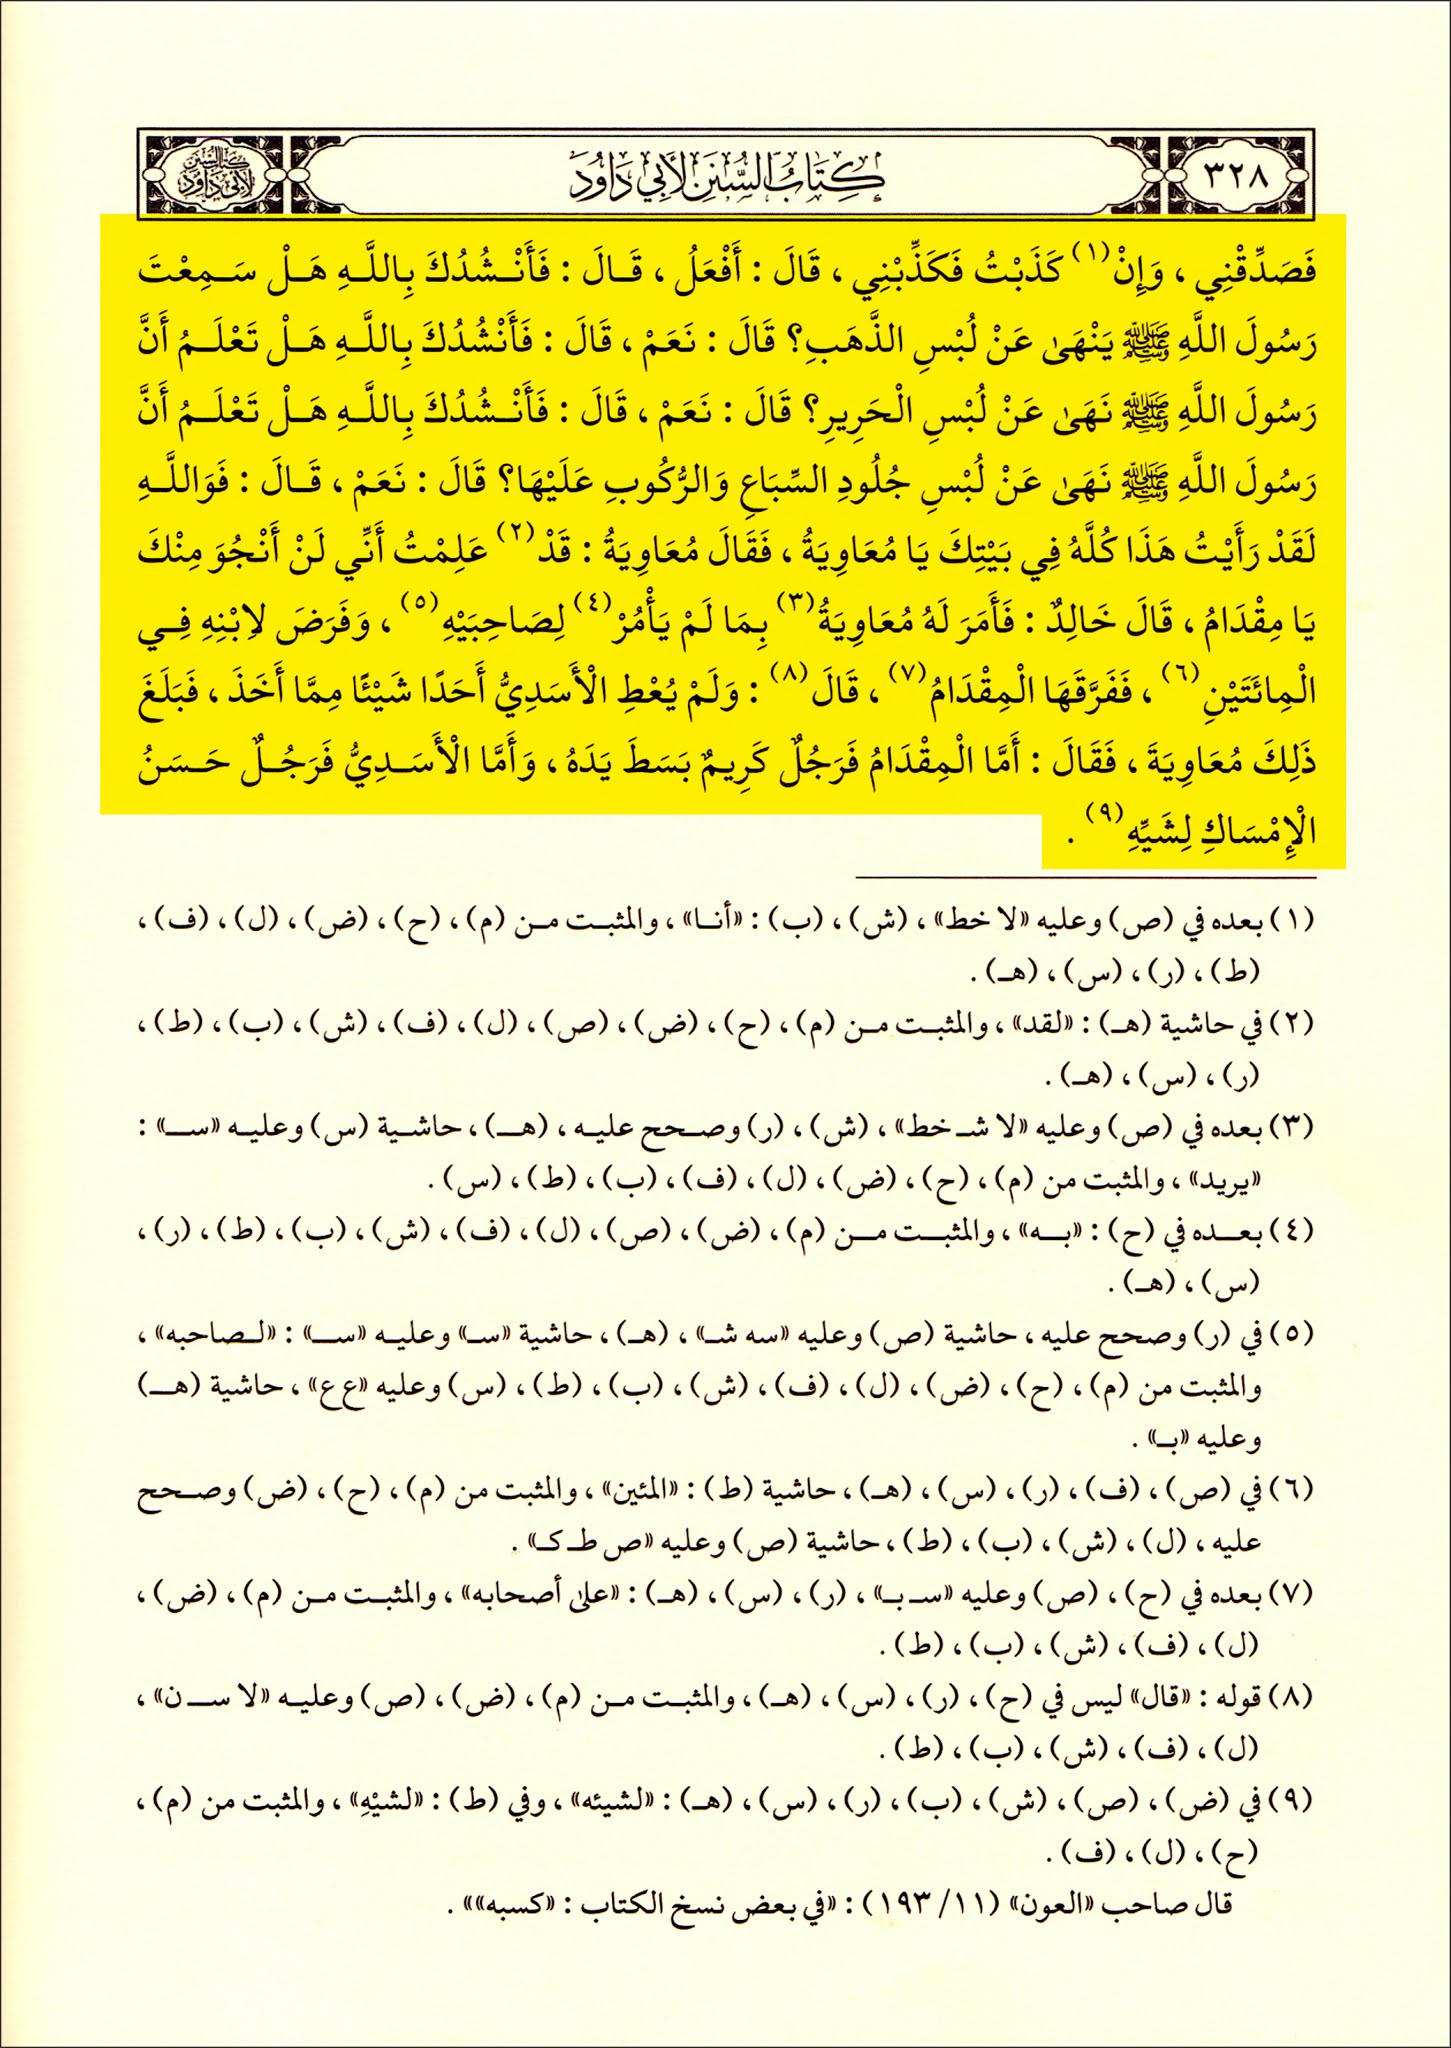 ٣٢٨
كِتَابُ السُّنَنِ لِأَبِي دَاوُدَ
كتاب السنن
لأبي داود
فَصَدِّقْنِي ، وَإِنْ(١) كَذَبْتُ فَكَذِّبْنِي ، قَالَ : أَفْعَلُ ، قَالَ : فَأَنْشُدُكَ بِاللَّهِ هَلْ سَمِعْتَ
رَسُولَ اللَّهِ ﷺ يَنْهَىٰ عَنْ لُبْسِ الذَّهَبِ؟ قَالَ : نَعَمْ ، قَالَ : فَأَنْشُدُكَ بِاللَّهِ هَلْ تَعْلَمُ أَنَّ
رَسُولَ اللَّهِ ﷺ نَهَىٰ عَنْ لُبْسِ الْحَرِيرِ؟ قَالَ : نَعَمْ ، قَالَ : فَأَنْشُدُكَ بِاللَّهِ هَلْ تَعْلَمُ أَنَّ
رَسُولَ اللَّهِ ﷺ نَهَىٰ عَنْ لُبْسِ جُلُودِ السِّبَاعِ وَالرُّكُوبِ عَلَيْهَا؟ قَالَ : نَعَمْ ، قَالَ : فَوَاللَّهِ
لَقَدْ رَأَيْتُ هَذَا كُلَّهُ فِي بَيْتِكَ يَا مُعَاوِيَةُ ، فَقَالَ مُعَاوِيَةُ : قَدْ(٢) عَلِمْتُ أَنِّي لَنْ أَنْجُوَ مِنْكَ
يَا مِقْدَامُ ، قَالَ خَالِدٌ : فَأَمَرَ لَهُ مُعَاوِيَةُ(٣) بِمَا لَمْ يَأْمُرْ(٤) لِصَاحِبَيْهِ(٥) ، وَفَرَضَ لِابْنِهِ فِي
الْمِائَتَيْنِ(٦) ، فَفَرَّقَهَا الْمِقْدَامُ(٧) ، قَالَ(٨) : وَلَمْ يُعْطِ الْأَسَدِيُّ أَحَدًا شَيْئًا مِمَّا أَخَذَ ، فَبَلَغَ
ذَلِكَ مُعَاوِيَةَ ، فَقَالَ : أَمَّا الْمِقْدَامُ فَرَجُلٌ كَرِيمٌ بَسَطَ يَدَهُ ، وَأَمَّا الْأَسَدِيُّ فَرَجُلٌ حَسَنُ
الْإِمْسَاكِ لِشَيِّهِ(٩) .
(١) بعده في (ص) وعليه «لا خط» ، (ش) ، (ب) : «أنا» ، والمثبت من (م) ، (ح) ، (ض) ، (ل) ، (ف) ،
(ط) ، (ر) ، (س) ، (هـ) .
(٢) في حاشية (هـ) : «لقد» ، والمثبت من (م) ، (ح) ، (ض) ، (ص) ، (ل) ، (ف) ، (ش) ، (ب) ، (ط) ،
(ر) ، (س) ، (هـ) .
(٣) بعده في (ص) وعليه «لا شـ خط» ، (ش) ، (ر) وصحح عليه ، (هـ) ، حاشية (س) وعليه «سـ» :
«يريد» ، والمثبت من (م) ، (ح) ، (ض) ، (ل) ، (ف) ، (ب) ، (ط) ، (س) .
(٤) بعده في (ح) : «به» ، والمثبت من (م) ، (ض) ، (ص) ، (ل) ، (ف) ، (ش) ، (ب) ، (ط) ، (ر) ،
(س) ، (هـ) .
(٥) في (ر) وصحح عليه ، حاشية (ص) وعليه «سه شـ» ، (هـ) ، حاشية «سـ» وعليه «سـ» : «لصاحبه» ،
والمثبت من (م) ، (ح) ، (ض) ، (ل) ، (ف) ، (ش) ، (ب) ، (ط) ، (س) وعليه «ع ع» ، حاشية (هـ)
وعليه «بـ» .
(٦) في (ص) ، (ف) ، (ر) ، (س) ، (هـ) ، حاشية (ط) : «المئين» ، والمثبت من (م) ، (ح) ، (ض) وصحح
عليه ، (ل) ، (ش) ، (ب) ، (ط) ، حاشية (ص) وعليه «ص طـ كـ» .
(٧) بعده في (ح) ، (ص) وعليه «سـ بـ» ، (ر) ، (س) ، (هـ) : «على أصحابه» ، والمثبت من (م) ، (ض) ،
(ل) ، (ف) ، (ش) ، (ب) ، (ط) .
(٨) قوله : «قال» ليس في (ح) ، (ر) ، (س) ، (هـ) ، والمثبت من (م) ، (ض) ، (ص) وعليه «لا سـ ن» ،
(ل) ، (ف) ، (ش) ، (ب) ، (ط) .
(٩) في (ض) ، (ص) ، (ش) ، (ب) ، (ر) ، (س) ، (هـ) : «لشيئه» ، وفي (ط) : «لشيْهِ» ، والمثبت من (م) ،
(ح) ، (ل) ، (ف) .
قال صاحب «العون» (١١/ ١٩٣) : «في بعض نسخ الكتاب : «كسبه»» .